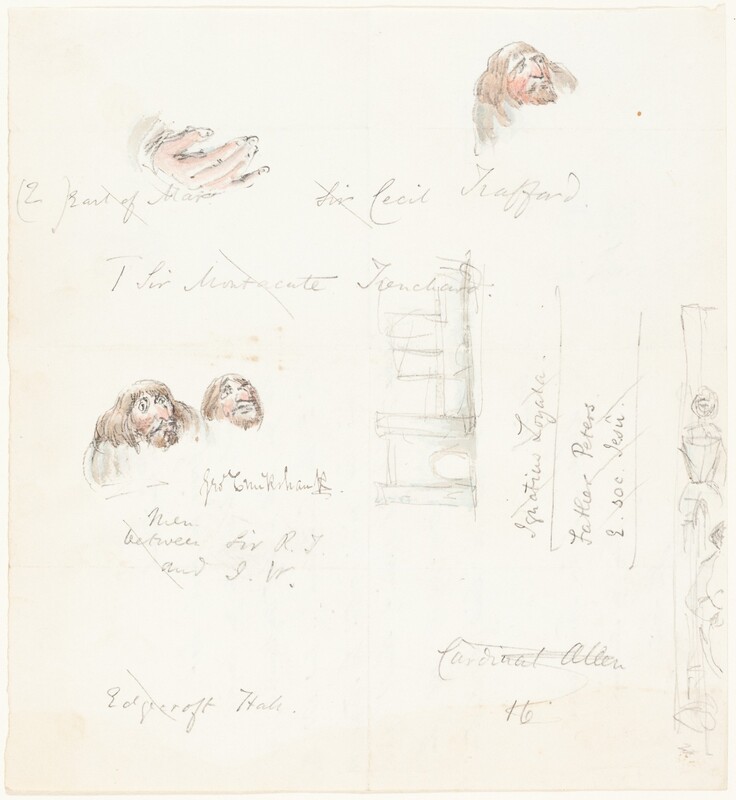 (2 Earl of Mar
Sir Cecil Trafford.
T Sir Montacute Trenchard.
Geo Cruikshank.
Men
between Sir R. T
and I. W.
Ignatius Loyala.
Father Peters
E. soc. Jesu.
Cardinal Allen
16
Edgecroft Hall.